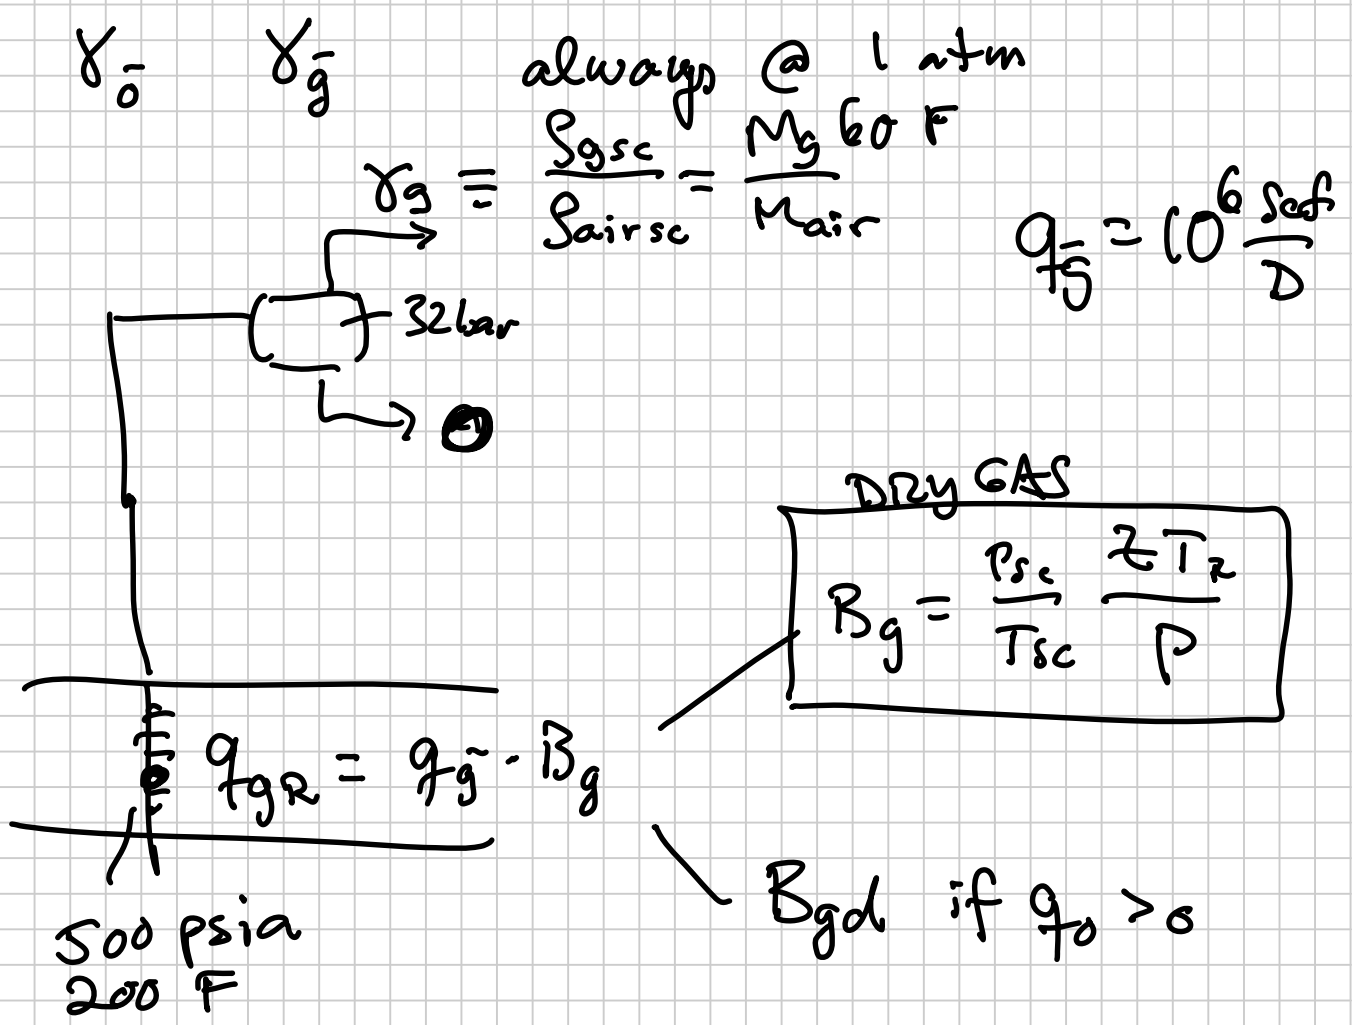 γō γḡ always @ 1 atm 60 F
γg ≡ ρgsc / ρairsc = Mg / Mair
qḡ = 10^6 Scf / D
32 bar
DRY GAS
Bg = Psc / Tsc ZTR / P
qgR = qḡ · Bg
Bgd if qo > 0
500 psia
200 F